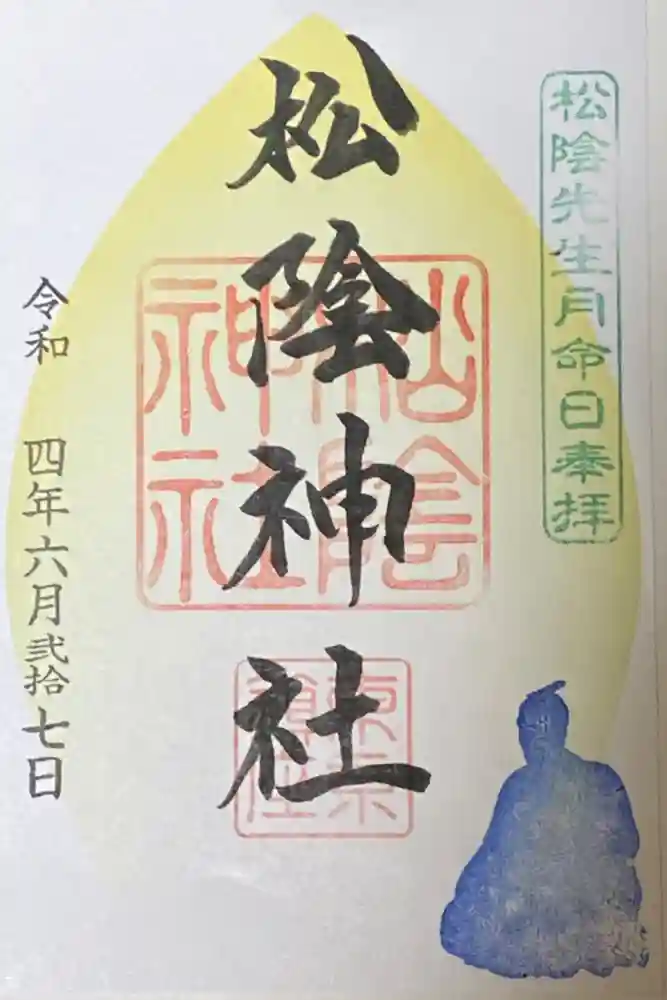 松陰先生月命日奉拝
松陰神社
松陰
神社
東京
鎮座
令和 四年六月弐拾七日